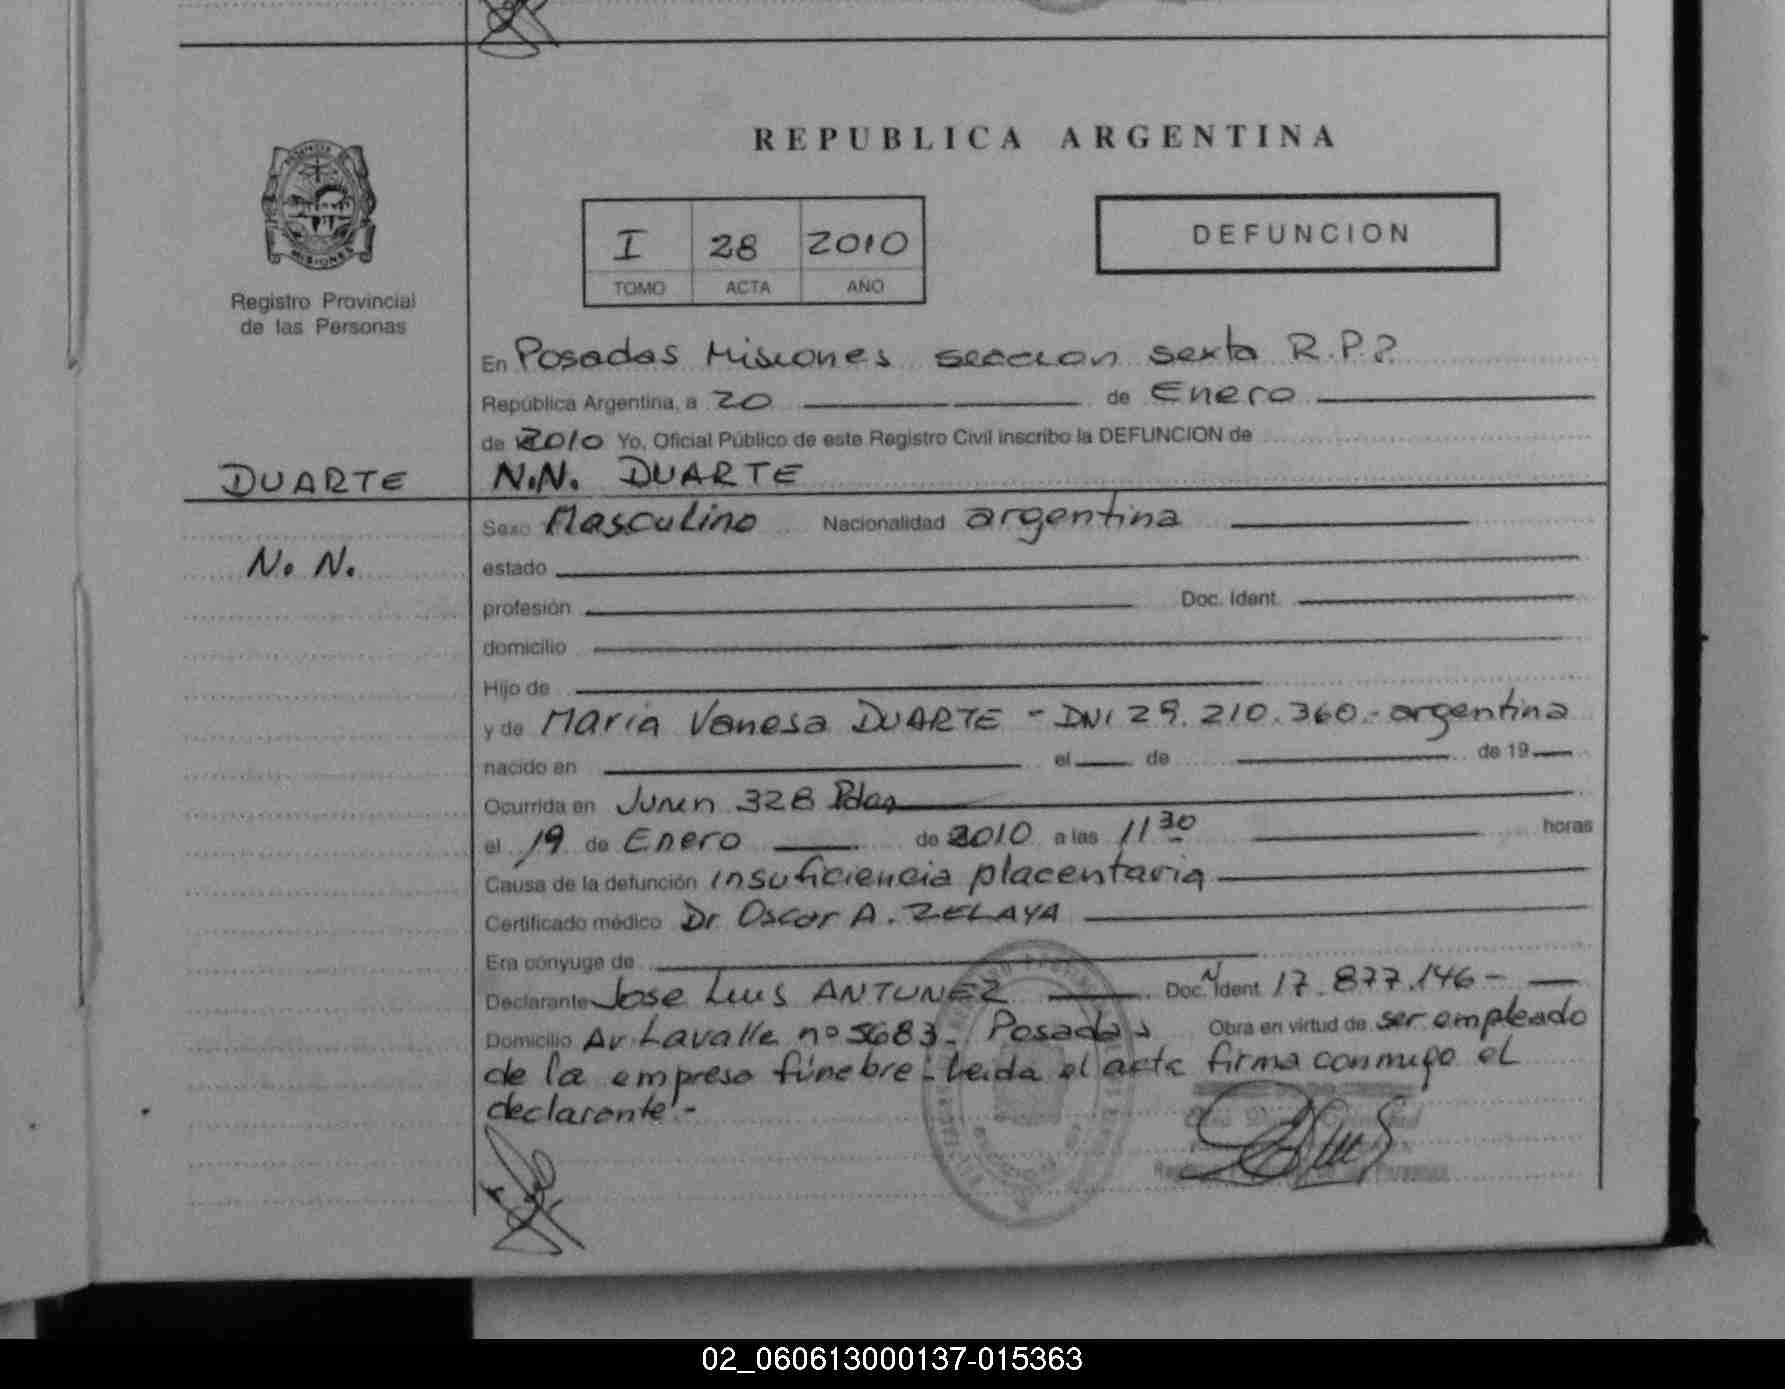 REPUBLICA ARGENTINA
I 28 2010
TOMO ACTA AÑO
DEFUNCION
MISIONES
Registro Provincial
de las Personas
En Posadas Misiones seccion sexta R.P.P.
República Argentina, a 20 de Enero
de 2010 Yo, Oficial Público de este Registro Civil inscribo la DEFUNCION de
DUARTE
N.N. DUARTE
N. N.
Sexo Masculino Nacionalidad argentina
estado
profesión Doc. Ident.
domicilio
Hijo de
y de Maria Vanesa DUARTE - DNI 29.210.360.- argentina
nacido en el de de 19
Ocurrida en Junin 328 Pdas
el 19 de Enero de 2010 a las 11 30 horas
Causa de la defunción insuficiencia placentaria
Certificado médico Dr Oscar A. ZELAYA
Era cónyuge de
Declarante Jose Luis ANTUNEZ Doc. Ident 17.877.146 -
Domicilio Av Lavalle nº 5683 - Posadas Obra en virtud de ser empleado
de la empresa fúnebre - Leida el acta firma conmigo el
declarante -
02_060613000137-015363